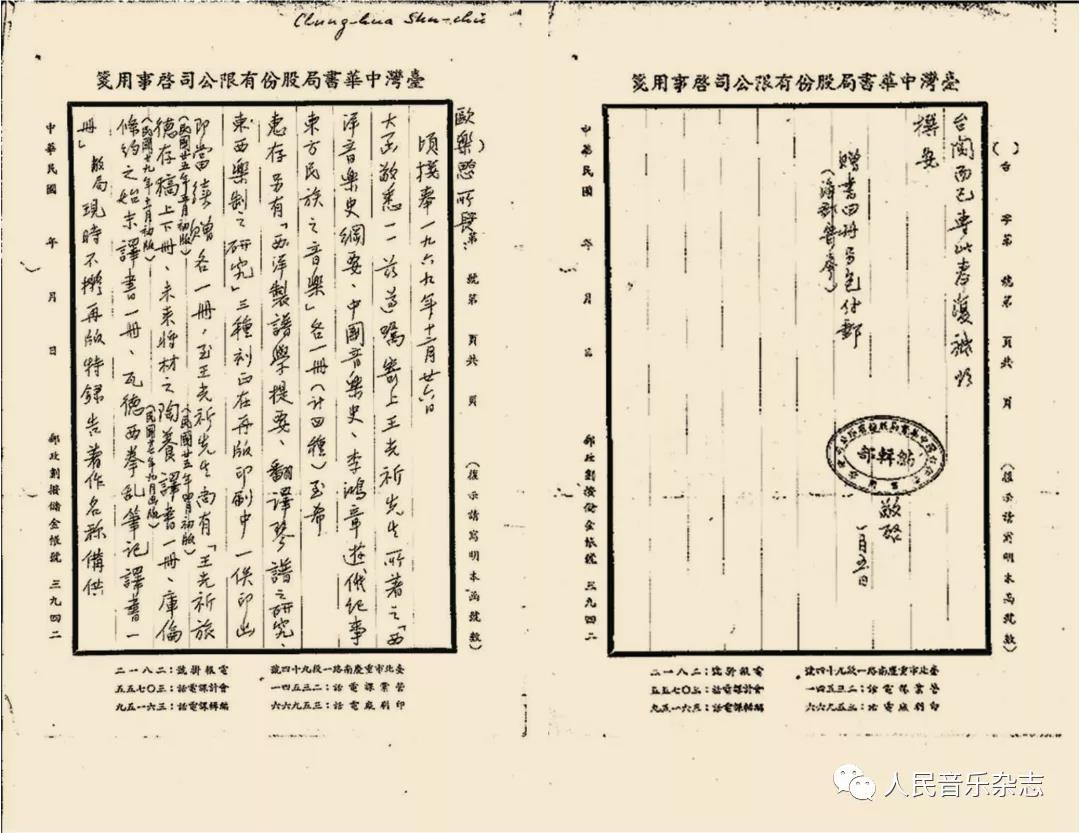 Chung-hua Shu-chü
臺灣中華書局股份有限公司啓事用箋
第 號第 頁共 頁 (復示請寫明本函號數)
歐樂思所長：
頃接奉一九六九年十二月廿六日
大函敬悉一一茲遵囑寄上王光祈先生所著之「西
洋音樂史綱要、中國音樂史、李鴻章遊俄紀事
東方民族之音樂」各一冊（計四種）至希
惠存另有「西洋製譜學提要、翻譯琴譜之研究、
東西樂制之研究」三種刻正在再版印刷中一俟印出
即當續贈各一冊，至王光祈先生尚有「王光祈旅
(民國廿五年五月初版) (民國廿五年四月初版)
德存稿上下冊、未來將材之陶養譯書一冊、庫倫
(民國十九年三月初版)
條約之始末譯書一冊、瓦德西拳亂筆記譯書一
冊」敝局現時不擬再版特錄告著作名稱備供
中華民國 年 月 日 郵政劃撥儲金帳號 三九四二
臺北市重慶南路一段九十四號 電報掛號：二八一二
營業課電話：二三五四一 會計課電話：三〇七五五
印刷廠電話：三五九六六 編輯課電話：三六一五九
臺灣中華書局股份有限公司啓事用箋
( )台 字第 號第 頁共 頁 (復示請寫明本函號數)
台閱而已專此奉復祇頌
撰安
贈書四冊另包付郵
（海郵寄奉）
編輯部
敬啓
一月五日
中華民國 年 月 日 郵政劃撥儲金帳號 三九四二
臺北市重慶南路一段九十四號 電報掛號：二八一二
營業課電話：二三五四一 會計課電話：三〇七五五
印刷廠電話：三五九六六 編輯課電話：三六一五九
人民音乐杂志